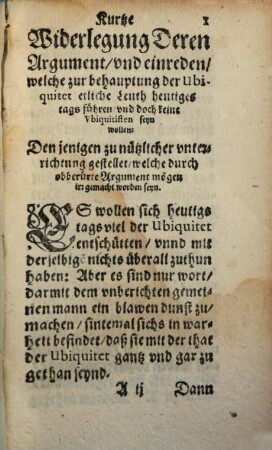 Kurtze 1
Widerlegung Deren
Argument/ vnd einreden/
welche zur behauptung der Ubi-
quitet etliche Leuth heutiges
tags führen vnd doch keine
Vbiquitisten seyn
wollen:
Den jenigen zu nützlicher vnter-
richtung gestellet/ welche durch
obberürte Argument mögen
irr gemacht worden seyn.
ES wollen sich heutigs
tags viel der Ubiquitet
entschütten/ vnnd mit
derselbigē nichts überall zuthun
haben: Aber es sind nur wort/
darmit dem vnberichten gemei-
nen mann ein blawen dunst zu-
machen/ sintemal sichs in war-
heit befindet/ daß sie mit der that
der Ubiquitet gantz vnd gar zu-
gethan seynd.
A ij Dann